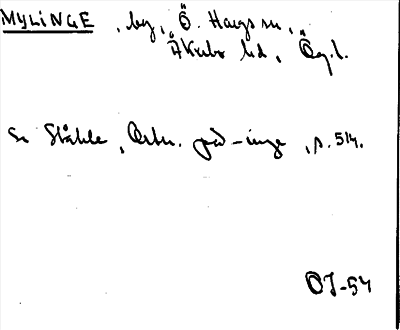 MYLINGE, by, Ö. Hargs sn,
Åkerbo hd, Ög. l.
Se Ståhle, Ortn. på -inge, s. 514.
OJ-54